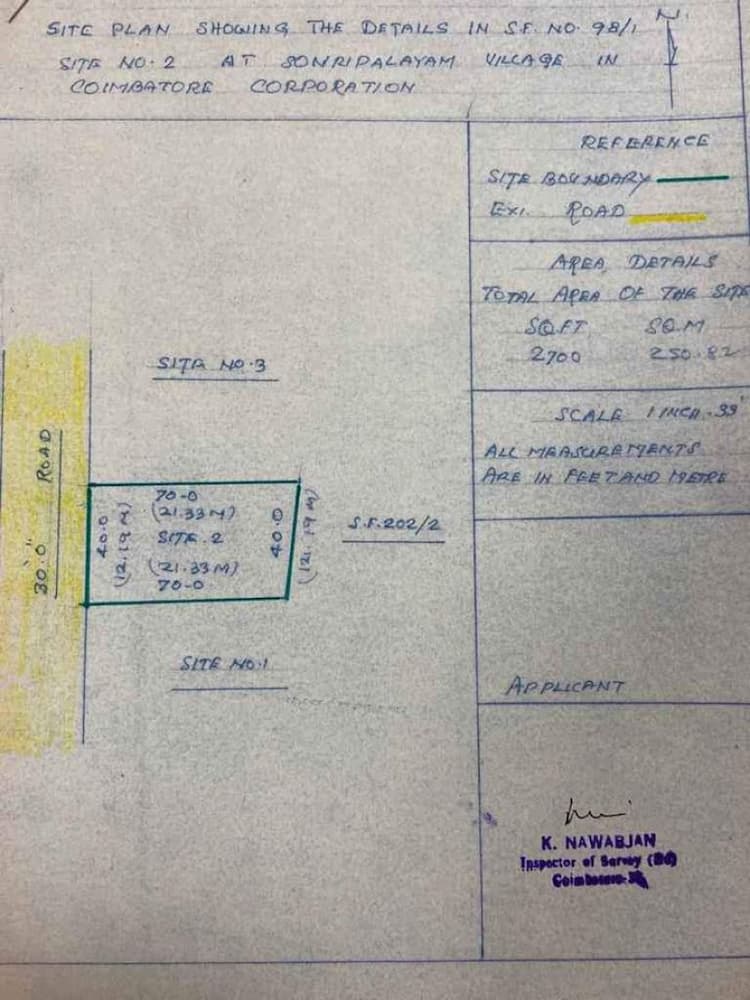 SITE PLAN SHOWING THE DETAILS IN S.F. NO. 98/1
SITE NO. 2 AT SOWRIPALAYAM VILLAGE IN
COIMBATORE CORPORATION
N.
REFERENCE
SITE BOUNDARY
EXI. ROAD
AREA DETAILS
TOTAL AREA OF THE SITE
SQ.FT SQ.M
2700 250.82
SCALE 1 INCH - 33'
ALL MEASUREMENTS
ARE IN FEET AND METRE
SITE NO. 3
30.0" ROAD
70-0
(21.33 M)
SITE. 2
(21.33 M)
70-0
40.0
(12.19 M)
40.0
(12.19 M)
S.F. 202/2
SITE NO. 1
APPLICANT
K. NAWABJAN
Inspector of Survey